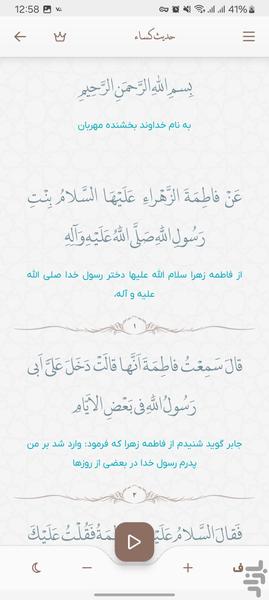 12:58
41%
حدیث کساء
بِسمِ اللهِ الرَّحمنِ الرَّحیمِ
به نام خداوند بخشنده مهربان
عَنْ فاطِمَةَ الزَّهْراءِ عَلَیْهَا السَّلامُ بِنْتِ
رَسُولِ اللهِ صَلَّى اللهُ عَلَیْهِ وَآلِهِ
از فاطمه زهرا سلام الله علیها دختر رسول خدا صلی الله
علیه و آله،
۱
قالَ سَمِعْتُ فاطِمَةَ اَنَّها قالَتْ دَخَلَ عَلَىَّ اَبى
رَسُولُ اللهِ فى بَعْضِ الاَْیّامِ
جابر گوید شنیدم از فاطمه زهرا که فرمود: وارد شد بر من
پدرم رسول خدا در بعضی از روزها
۲
فَقالَ السَّلامُ فاطِمَةُ فَقُلْتُ عَلَیْكَ
ف
بازار